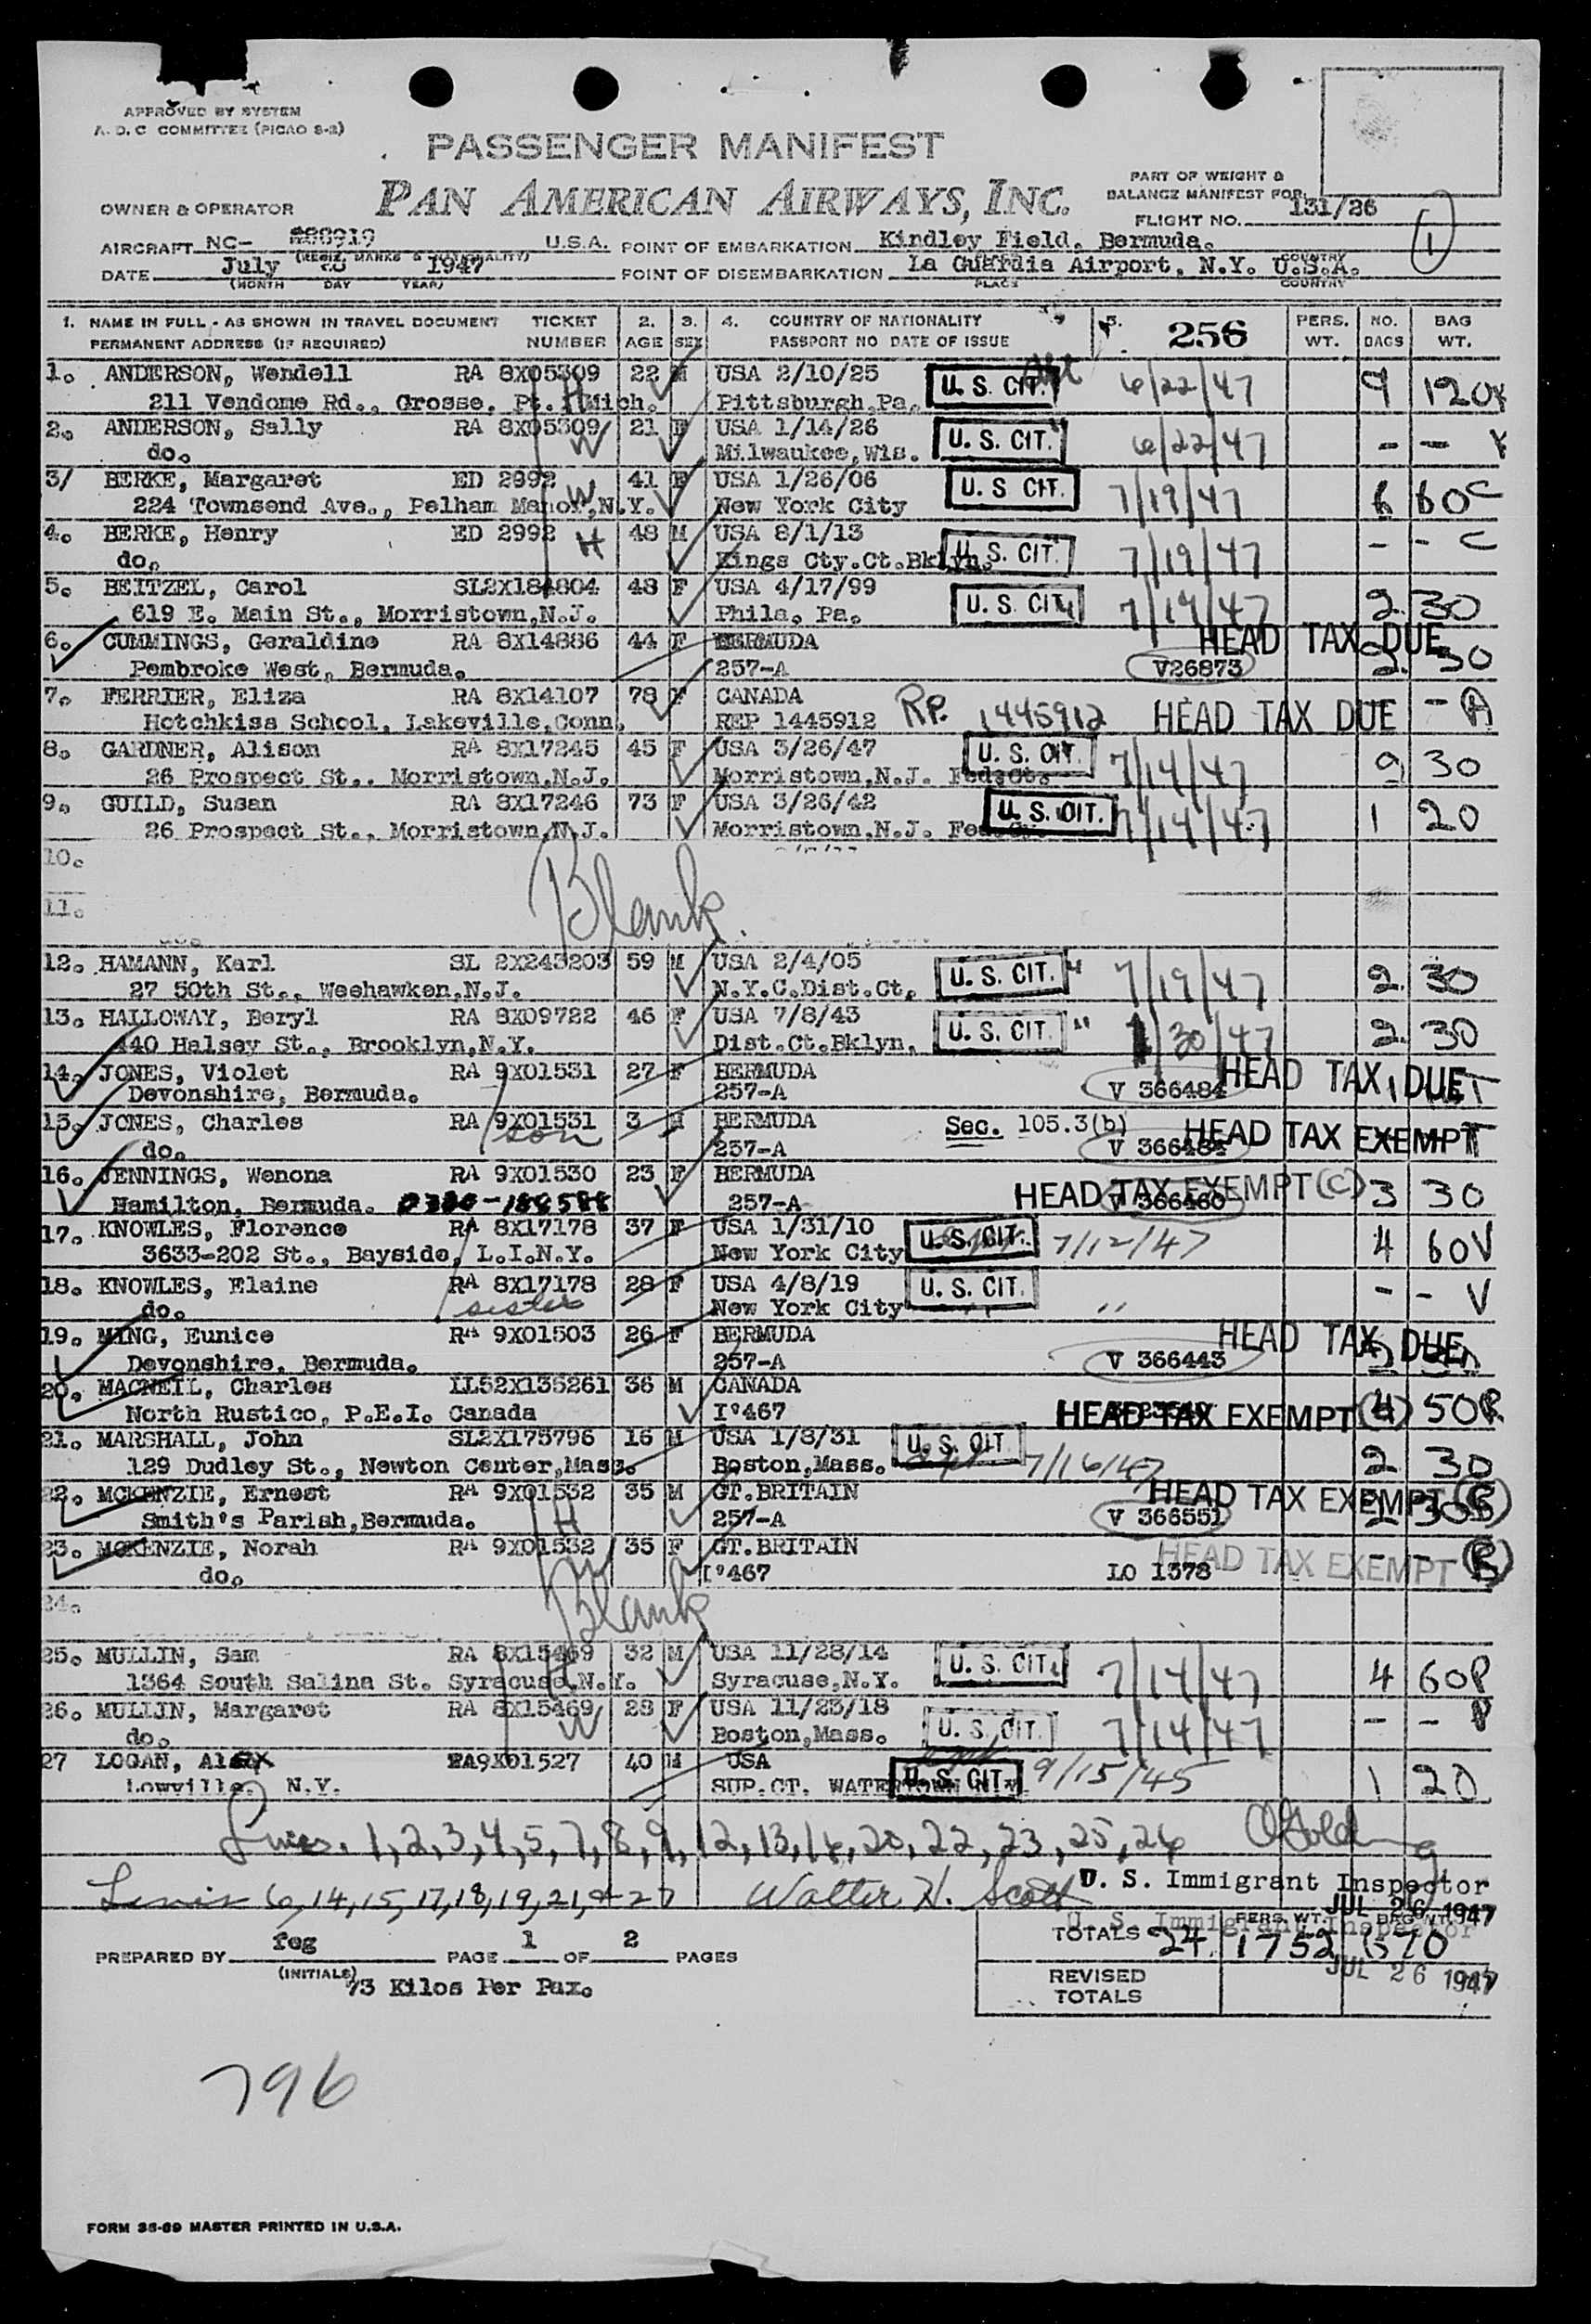 APPROVED BY SYSTEM
A. D. C COMMITTEE (PICAO S-2)
PASSENGER MANIFEST
PAN AMERICAN AIRWAYS, INC.
PART OF WEIGHT &
BALANCE MANIFEST FOR
OWNER & OPERATOR
FLIGHT NO. 131/26
1
AIRCRAFT NC- 88919 U.S.A. POINT OF EMBARKATION Kindley Field, Bermuda.
(REGIS. MARKS & NATIONALITY) COUNTRY
DATE July 1947 POINT OF DISEMBARKATION La Guardia Airport, N.Y. U.S.A.
(MONTH DAY YEAR) PLACE COUNTRY
1. NAME IN FULL - AS SHOWN IN TRAVEL DOCUMENT TICKET 2. 3. 4. COUNTRY OF NATIONALITY 5. 256 PERS. NO. BAG
PERMANENT ADDRESS (IF REQUIRED) NUMBER AGE SEX PASSPORT NO DATE OF ISSUE WT. BAGS WT.
1. ANDERSON, Wendell RA 8X05309 22 M USA 2/10/25 U. S. CIT. 6/22/47 9 120Y
211 Vendome Rd., Grosse, Pt. Mich. H Pittsburgh,Pa.
2. ANDERSON, Sally RA 8X05309 21 F USA 1/14/26 U. S. CIT. " 6/22/47 - - Y
do. W Milwaukee,Wis.
3/ BERKE, Margaret ED 2992 41 F USA 1/26/06 U. S. CIT. 7/19/47 6 60C
224 Townsend Ave., Pelham Manor,N.Y. W New York City
4. BERKE, Henry ED 2992 H 48 M USA 8/1/13 U. S. CIT. 7/19/47 - - C
do. Kings Cty.Ct.Bklyn.
5. BEITZEL, Carol SL2X184804 48 F USA 4/17/99 U. S. CIT. " 7/19/47 2 30
619 E. Main St., Morristown,N.J. Phila, Pa.
6. CUMMINGS, Geraldine RA 8X14886 44 F BERMUDA HEAD TAX DUE 2 30
Pembroke West, Bermuda. 257-A V26873
7. FERRIER, Eliza RA 8X14107 78 F CANADA HEAD TAX DUE - A
Hotchkiss School, Lakeville,Conn. REP 1445912 RP. 1445912
8. GARDNER, Alison RA 8X17245 45 F USA 3/26/47 U. S. CIT. 7/14/47 2 30
26 Prospect St., Morristown,N.J. Morristown,N.J. Fed.Ct.
9. GUILD, Susan RA 8X17246 73 F USA 3/26/42 U. S. CIT. 7/14/47 1 20
26 Prospect St., Morristown,N.J. Morristown,N.J.
10.
Blank.
11.
12. HAMANN, Karl SL 2X243203 59 M USA 2/4/05 U. S. CIT. " 7/19/47 2 30
27 50th St., Weehawken,N.J. N.Y.C.Dist.Ct.
13. HALLOWAY, Beryl RA 8X09722 46 F USA 7/8/43 U. S. CIT. " 30/47 2 30
440 Halsey St., Brooklyn,N.Y. Dist.Ct.Bklyn.
14. JONES, Violet RA 9X01531 27 F BERMUDA HEAD TAX DUE
Devonshire, Bermuda. 257-A V 366484
15. JONES, Charles RA 9X01531 3 M BERMUDA Sec. 105.3(b) HEAD TAX EXEMPT
do. son 257-A V 366484
16. JENNINGS, Wenona RA 9X01530 23 F BERMUDA HEAD TAX EXEMPT (C) 3 30
Hamilton, Bermuda. 257-A V 366460
17. KNOWLES, Florence RA 8X17178 37 F USA 1/31/10 U. S. CIT. 7/12/47 4 60V
3633-202 St., Bayside, L.I.N.Y. New York City
18. KNOWLES, Elaine RA 8X17178 28 F USA 4/8/19 U. S. CIT. " - - V
do. sister New York City
19. MING, Eunice RA 9X01503 26 F BERMUDA HEAD TAX DUE
Devonshire, Bermuda. 257-A V 366443
20. MACNEIL, Charles IL52X135261 36 M CANADA HEAD TAX EXEMPT (4) 50R
North Rustico, P.E.I. Canada I°467
21. MARSHALL, John SL2X175796 16 M USA 1/8/31 U. S. CIT. 7/16/47 2 30
129 Dudley St., Newton Center,Mass. Boston,Mass.
22. MCKENZIE, Ernest RA 9X01532 35 M GT.BRITAIN HEAD TAX EXEMPT
Smith's Parish,Bermuda. H 257-A V 366551
23. MCKENZIE, Norah RA 9X01532 35 F GT.BRITAIN HEAD TAX EXEMPT
do. W I°467 LO 1378
24. Blank
25. MULLIN, Sam RA 8X15469 32 M USA 11/28/14 U. S. CIT. 7/14/47 4 60P
1364 South Salina St. Syracuse,N.Y. H Syracuse,N.Y.
26. MULLIN, Margaret RA 8X15469 28 F USA 11/23/18 U. S. CIT. 7/14/47 - - P
do. W Boston,Mass.
27 LOGAN, Alex RA9X01527 40 M USA U. S. CIT. 9/15/45 1 20
Lowville, N.Y. SUP.CT. WATERTOWN N.Y.
Lines. 1,2,3,4,5,7,8,9,12,13,16,20,22,23,25,26
Lines 6,14,15,17,18,19,21,&27 Walter H. Scott U. S. Immigrant Inspector
JUL 26 1947
U. S. Immigrant Inspector
PERS. WT. BAG WT.
TOTALS 24 1752 670
JUL 26 1947
PREPARED BY feg PAGE 1 OF 2 PAGES
(INITIALS)
73 Kilos Per Pax.
REVISED
TOTALS
796
FORM 35-69 MASTER PRINTED IN U.S.A.